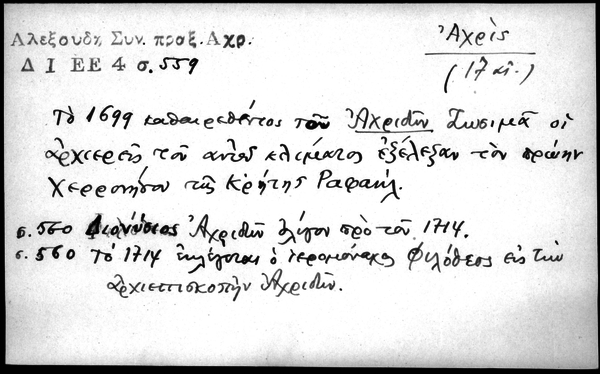 Αλεξούδη Συν. προξ. Αχρ.
Δ Ι ΕΕ 4 σ. 559
Ἀχρὶς
(17 αἰ.)
Τὸ 1699 καθαιρεθέντος τοῦ Ἀχριδῶν Ζωσιμᾶ οἱ
ἀρχιερεῖς τοῦ αὐτοῦ κλίματος ἐξέλεξαν τὸν πρώην
Χερρονήσου τῆς Κρήτης Ραφαήλ.
σ. 560 Διονύσιος Ἀχριδῶν ὀλίγον πρὸ τοῦ 1714.
σ. 560 Τὸ 1714 ἐκλέγεται ὁ ἱερομόναχος Φιλόθεος εἰς τὴν
ἀρχιεπισκοπὴν Ἀχριδῶν.